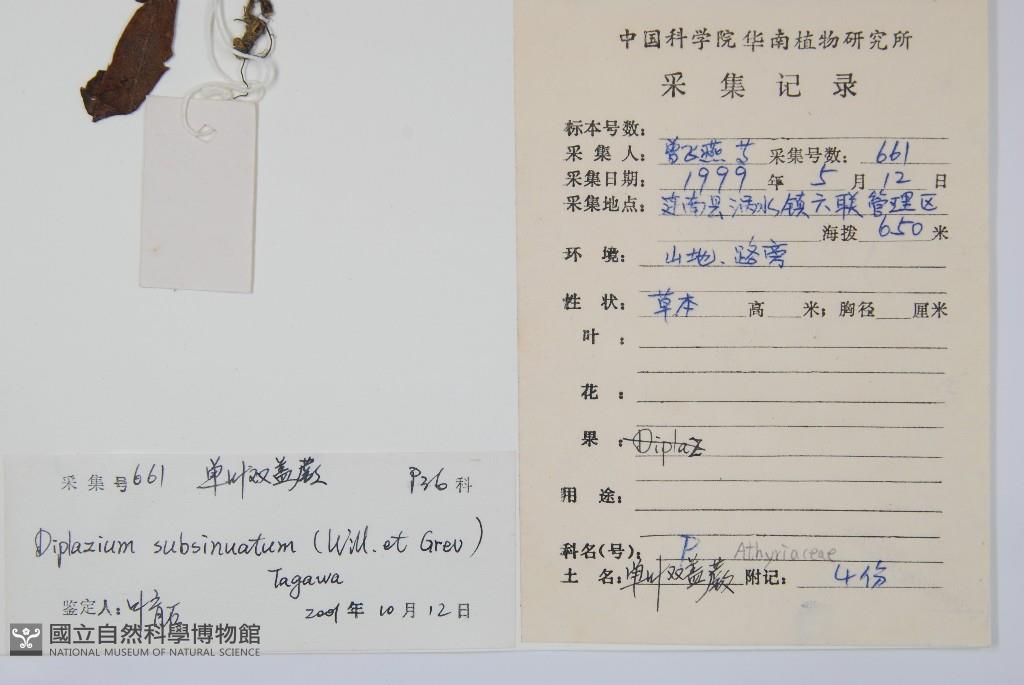 中国科学院华南植物研究所
采集记录
标本号数:
采集人: 曾飞燕 等 采集号数: 661
采集日期: 1999 年 5 月 12 日
采集地点: 连南县涡水镇六联管理区
海拨 650 米
环境: 山地、路旁
性状: 草本 高 米; 胸径 厘米
叶:
花:
果: Diplaz
用途:
科名(号): P Athyriaceae
土名: 单叶双盖蕨 附记: 4份
采集号 661 单叶双盖蕨 P36 科
Diplazium subsinuatum (Will. et Grev)
Tagawa
鉴定人: 叶育石 2001 年 10 月 12 日
國立自然科學博物館
NATIONAL MUSEUM OF NATURAL SCIENCE